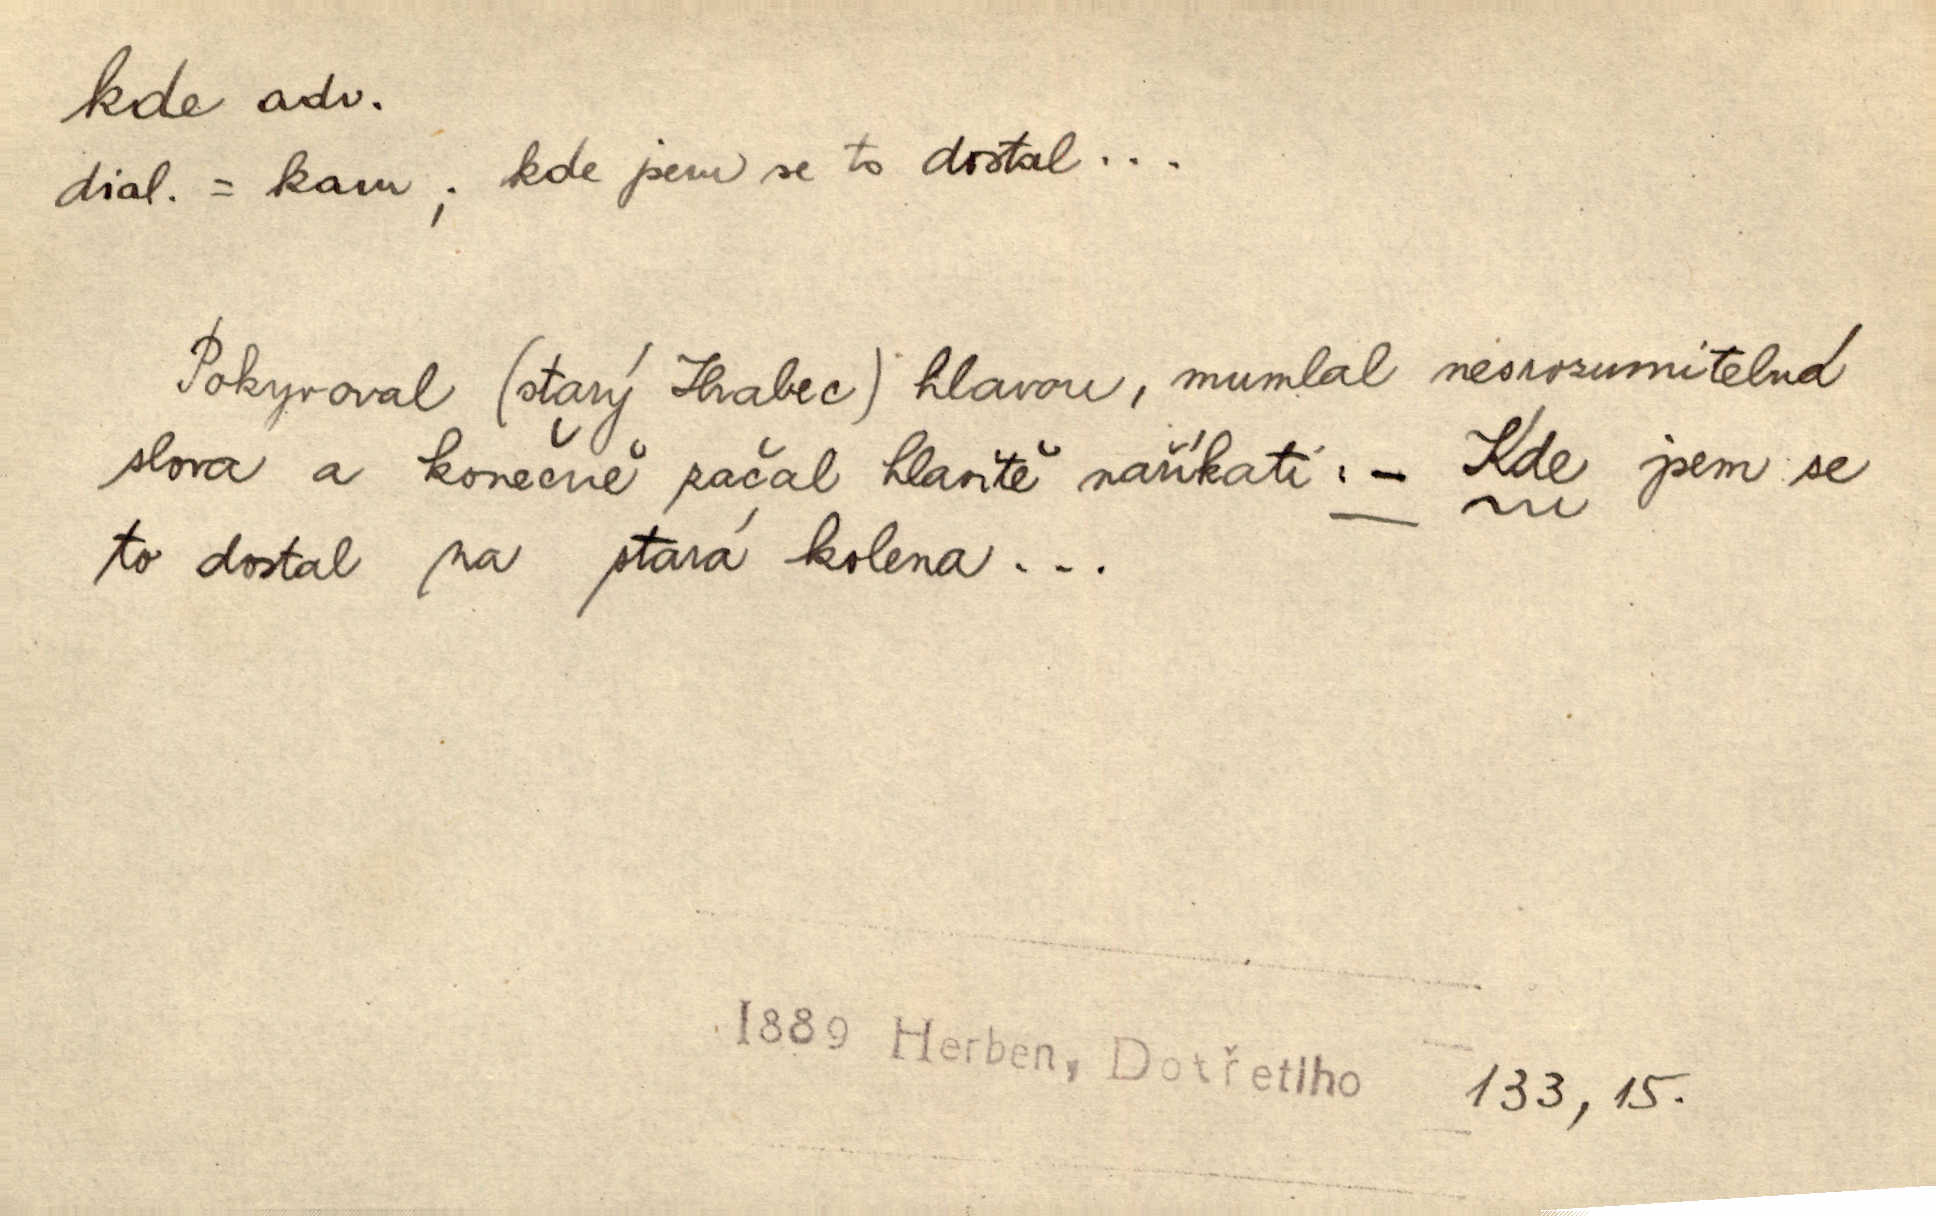 kde adv.
dial. = kam ; kde jsem se to dostal...
Pokyvoval (starý Hrabec) hlavou, mumlal nesrozumitelná
slova a konečně začal hlasitě naříkati : - Kde jsem se
to dostal na stará kolena...
1889 Herben, Dotřetího 133, 15.